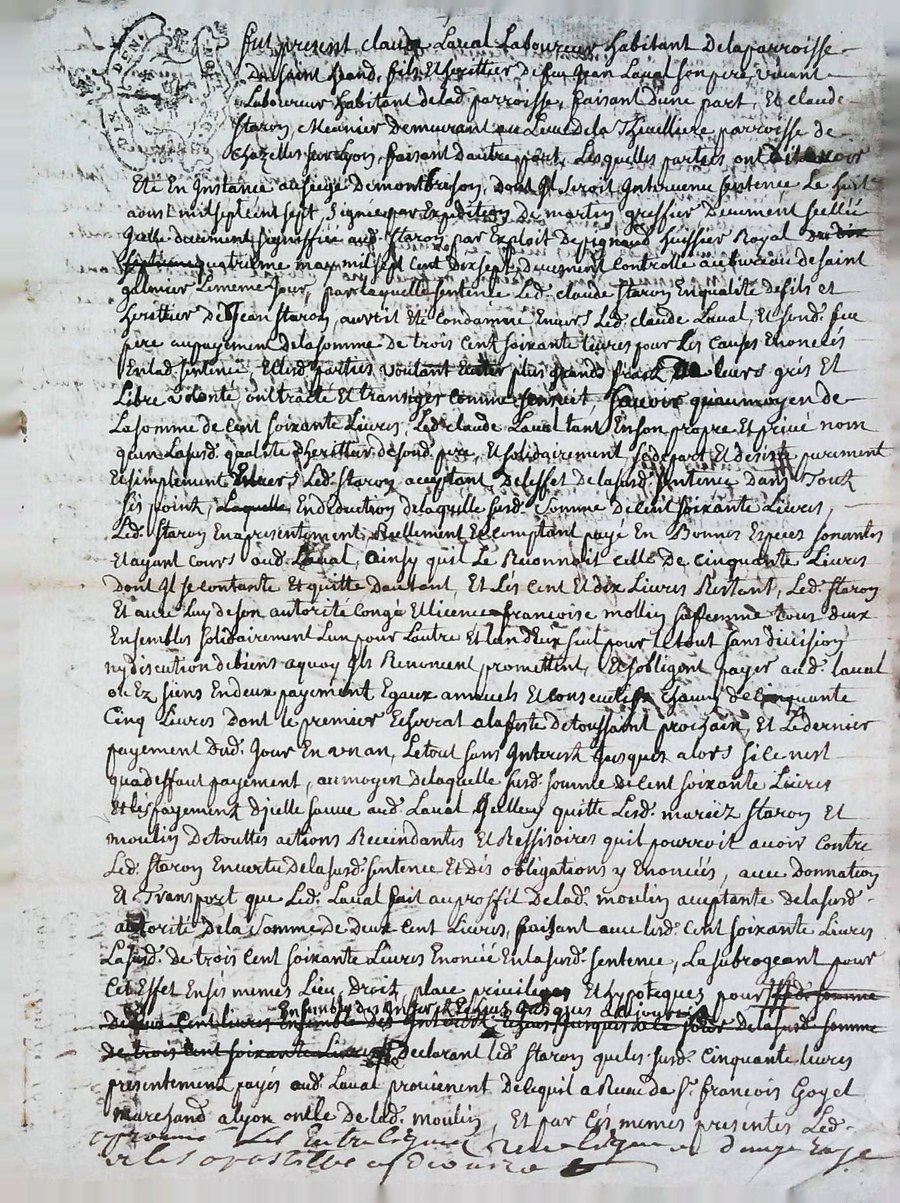 fut present claude Laval Laboureur habitant Delaparroisse
De saint heand, fils Et herittier de feu Jean Laval son pere vivant
Laboureur habitant delad. parroisse, faisant dune part, Et claude
Staron Meunier Demeurant au Lieu dela Thuilliere parroisse de
chazelles sur Lyon, faisant dautre part, Lesquelles parties ont dit avoir
Eté En Instance au siege De montbrison, dont Il seroit Intervenu sentence Le huit
aout mil sept cent sept, signée par Expedition De martin greffier Deuement scellée
Et deuement signiffiée aud. Staron par Exploit De pignaud huissier Royal
quatrieme may mil sept Cent Dix sept, deuement Controllé au bureau de saint
galmier Lememe Jour, par laquelle sentence Led. claude Staron En qualité de fils et
herittier De Jean Staron, auroit Eté Condamné Envers Led. claude Laval, Et sond. feu
pere au payement dela somme De trois Cent soixante livres pour Les Causes Enoncées
En lad. sentence, Et lesd. parties voulant Eviter plus grands fraix De leurs grés Et
Libre volonté ont traité Et transiger comme sensuit, sçavoir quau moyen de
La somme de Cent soixante Livres, Led. claude Laval tant En son propre Et privé nom
quen La susd. qualité dherittier de sond. pere, Et solidairement se depart Et desiste purement
Et simplement Envers Led. Staron acceptant De leffet De la susd. sentence Dans Touts
ses points, En Deduction de laquelle susd. somme de Cent soixante Livres,
Led. Staron En a presentement, Reellement Et comptant payé En Bonnes Especes sonantes
Et ayant Cours aud. Laval, ainsy quil Le Reconnoit celle De cinquante Livres
Dont Il se contante Et quitte dautant, Et Les Cent Et dix Livres Restant, Led. Staron
Et avec Luy de son autorité Congé Et licence francoise mollin sa femme tous deux
Ensembles solidairement Lun pour Lautre Et lun dEux seul pour le tout sans division
ny discution de biens a quoy Ils Renoncent promettent, Et sobligent payer aud. laval
ou Ez siens En deux payement Egaux annuels Et consecutifs Chacun de cinquante
Cinq Livres Dont le premier Echerrat a lafeste De toussaint prochain, Et Le dernier
payement dud. Jour En un an, Le tout sans Interest Jusques alors si ce nest
qua deffaut payement, au moyen De laquelle susd. somme de Cent soixante Livres
Et les payement dicelle sauve aud. Laval Icelluy quitte Lesd. mariéz Staron Et
moulin De touttes actions Rescindantes Et Ressisoires quil pourroit avoir Contre
Led. Staron En vertu de la susd. sentence Et des obligations y Enoncées, avec Donnation
Et Transport que Led. Laval fait au proffit De lad. moulin acceptante de la susd.
autorité De la somme de Deux Cent Livres, faisant avec lesd. Cent soixante Livres
La susd. de trois Cent soixante Livres Enoncée En la susd. sentence, La subrogeant pour
Cet Effet En ses memes Lieu, Droit, place privileges Et hypoteques pour
Ensemble des Jusques a ce jour de la susd. somme
de trois Cent soixante Livres Declarant led. Staron que les susd. Cinquante livres
presentement payés aud. Laval provienent De ce quil a Receu de Sr. francois Goyet
marchand a Lyon oncle De lad. moulin, Et par Ces memes presentes Led.